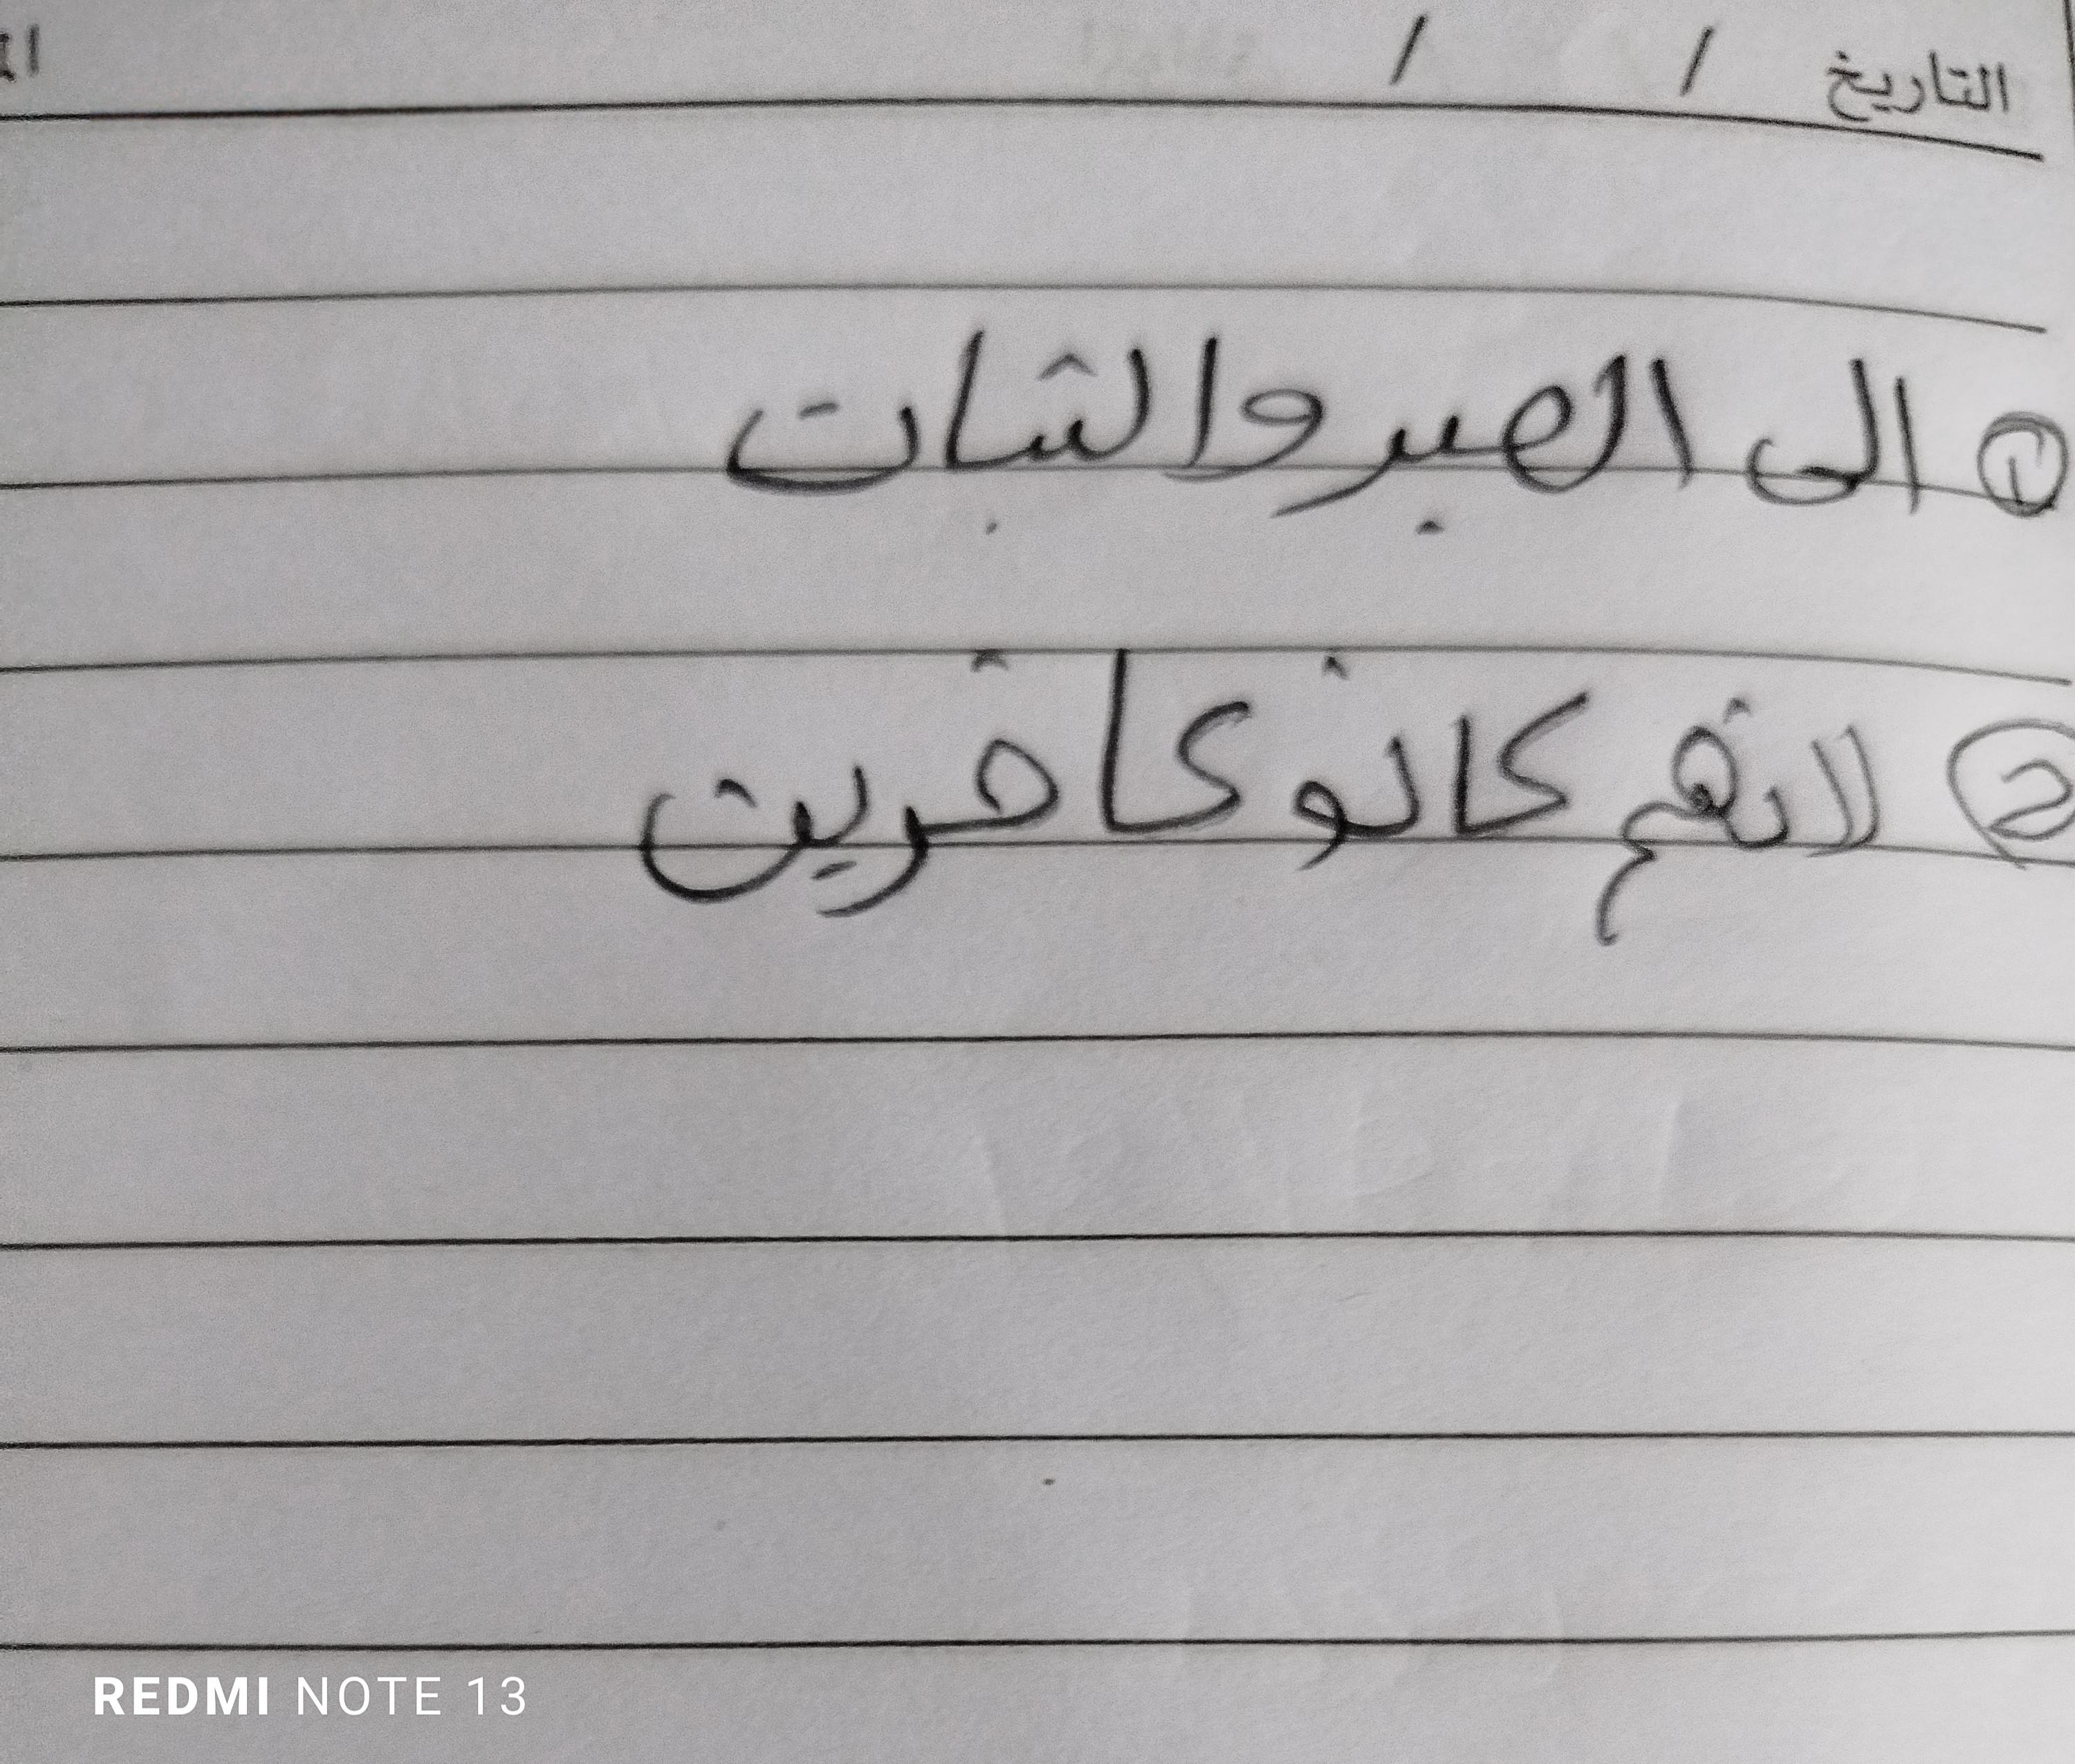 التاريخ / /
① الى الصبر والثبات
② لانهم كانو كافرين
REDMI NOTE 13